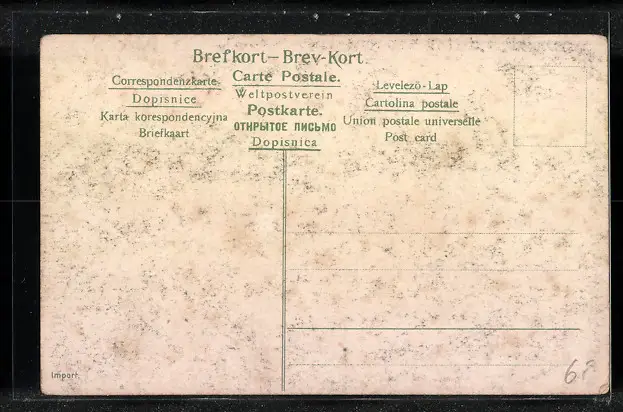 Brefkort—Brev-Kort
Correspondenzkarte
Carte Postale.
Levelező-Lap
Dopisnice
Weltpostverein
Cartolina postale
Karta korespondencyjna
Postkarte.
Union postale universelle
Briefkaart
ОТКРЫТОЕ ПИСЬМО
Post card
Dopisnica
Import.